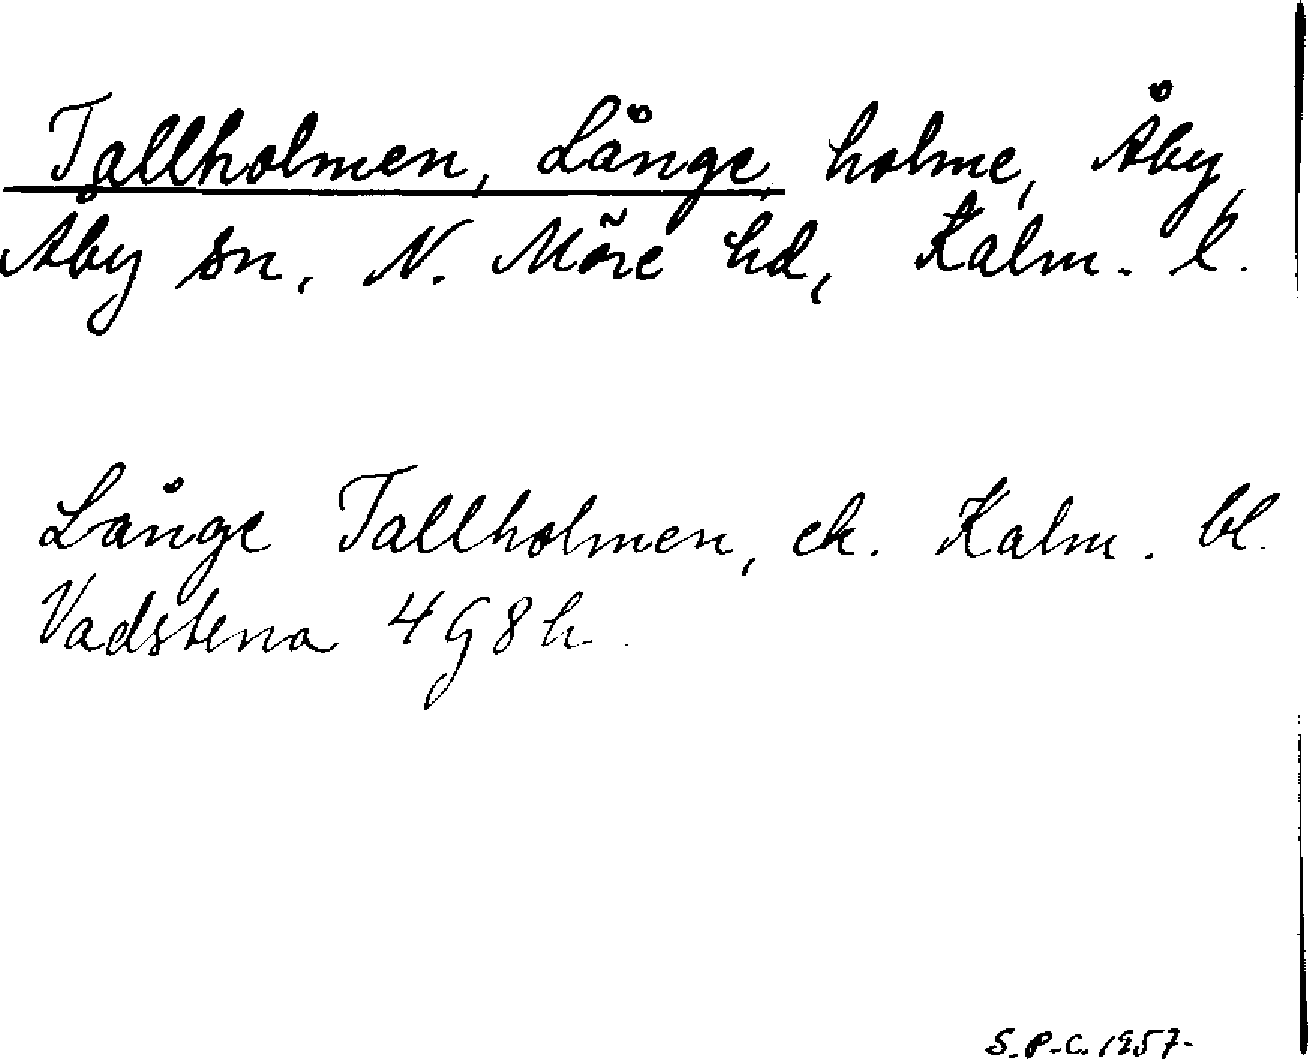 Tallholmen, Långe, holme, Åby,
Åby sn, N. Möre hd, Kalm. l.
Långe Tallholmen, ek. Kalm. bl.
Vadstena 4G8h.
S.P.C. 1957.